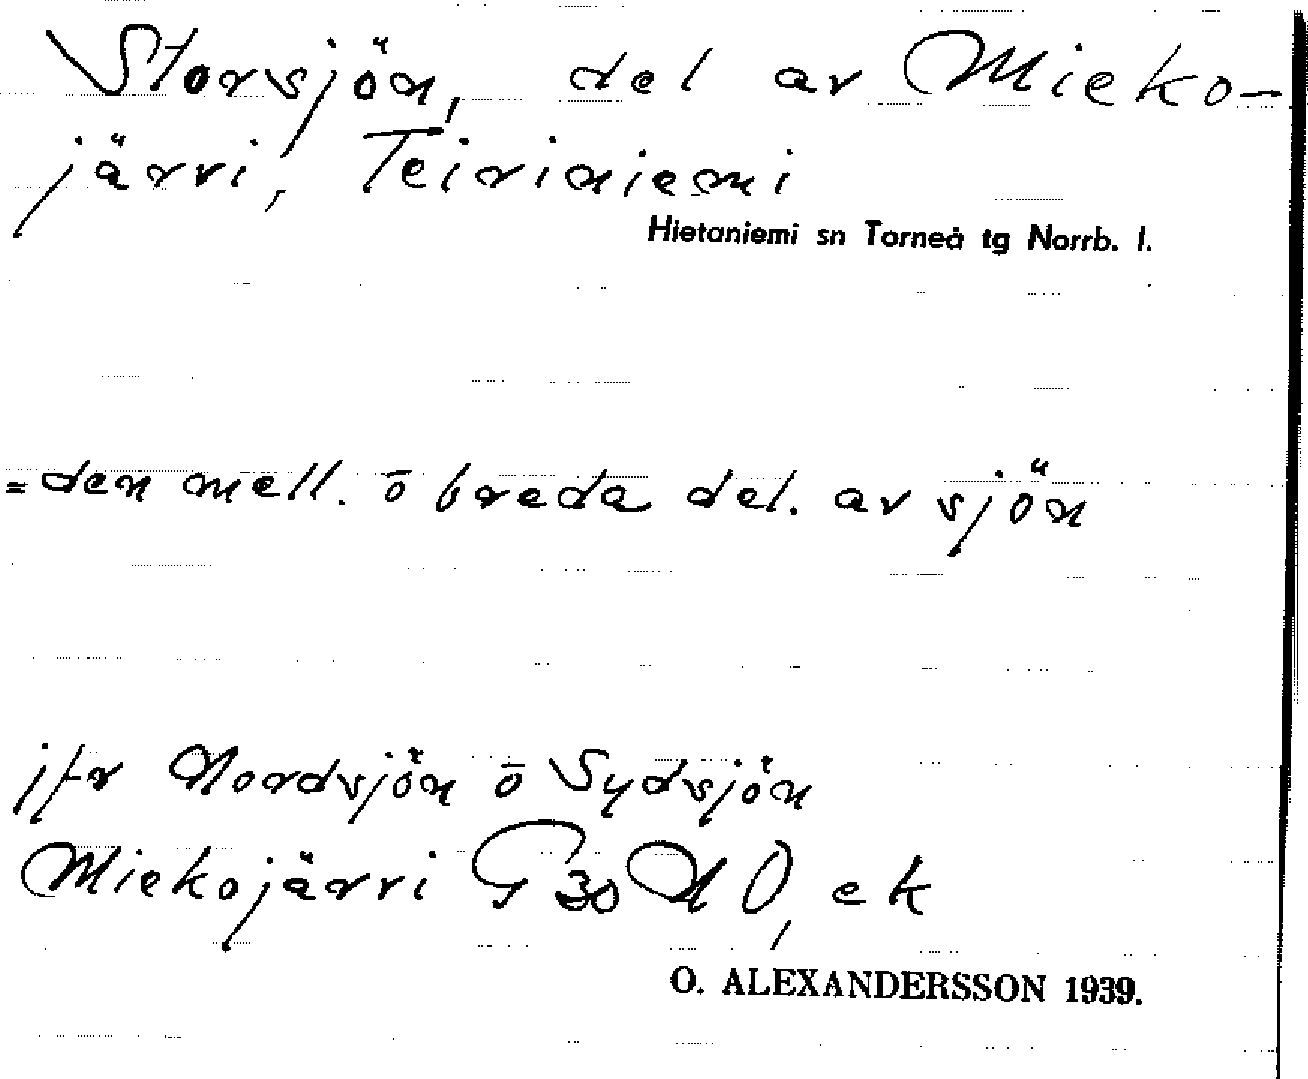 Storsjön, del av Mieko-
järvi, Teiriniemi
Hietaniemi sn Torneå tg Norrb. l.
=den mell. o breda del. av sjön
jfr Nordsjön o Sydsjön
Miekojärvi G 30 NO, ek
O. ALEXANDERSSON 1939.